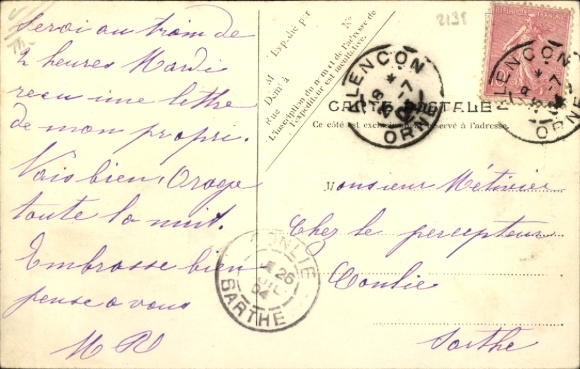 Serai au train de
2 heures Mardi
reçu une lettre
de mon propri.
Vais bien, Orage
toute la nuit.
Embrasse bien
pense a vous
M R
M
Expédié par
Demt à
Rue
No
L'inscription du nom et de l'adresse de
l'expéditeur est facultative.
2131
ALENCON
ORNE
ALENCON
ORNE
CARTE POSTALE
Ce côté est exclusivement réservé à l'adresse.
Monsieur Métivier
Chez le percepteur
Conlie
Sarthe
CONLIE
26
04
SARTHE